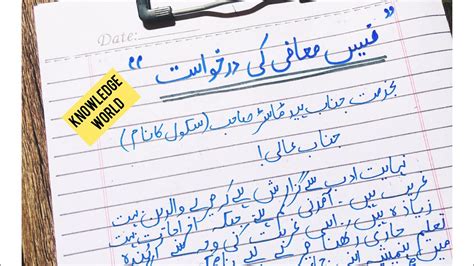 Date:
"فیس معافی کی درخواست"
KNOWLEDGE
WORLD
بخدمت جناب ہیڈ ماسٹر صاحب (سکول کا نام)
جناب عالی!
نہایت ادب سے گزارش ہے کہ میرے والدین بہت
غریب ہیں۔ آمدنی کم ہے جبکہ اخراجات بہت
زیادہ ہیں۔ اسی غربت کی وجہ سے آئندہ
تعلیم جاری رکھنا میرے لیے